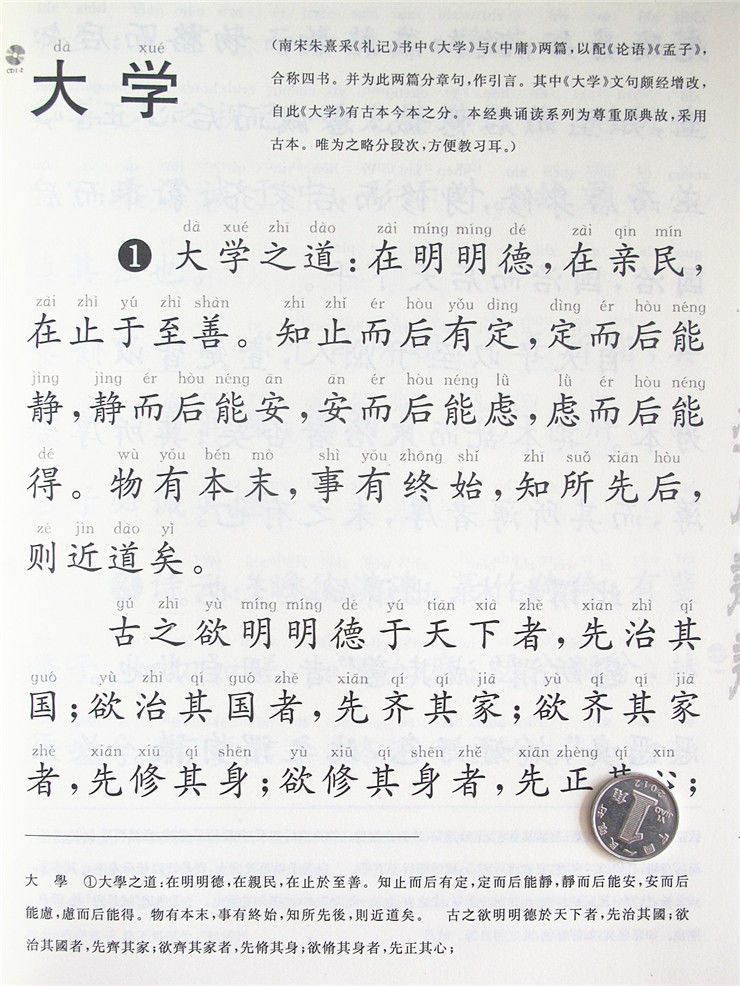 dà xué
CD1-2
大学
(南宋朱熹采《礼记》书中《大学》与《中庸》两篇,以配《论语》《孟子》,
合称四书。并为此两篇分章句,作引言。其中《大学》文句颇经增改,
自此《大学》有古本今本之分。本经典诵读系列为尊重原典故,采用
古本。唯为之略分段次,方便教习耳。)
dà xué zhī dào zài míng míng dé zài qīn mín
❶ 大学之道:在明明德,在亲民,
zài zhì yú zhì shàn zhī zhǐ ér hòu yǒu dìng dìng ér hòu néng
在止于至善。知止而后有定,定而后能
jìng jìng ér hòu néng ān ān ér hòu néng lǜ lǜ ér hòu néng
静,静而后能安,安而后能虑,虑而后能
dé wù yǒu běn mò shì yǒu zhōng shǐ zhī suǒ xiān hòu
得。物有本末,事有终始,知所先后,
zé jìn dào yǐ
则近道矣。
gǔ zhī yù míng míng dé yú tiān xià zhě xiān zhì qí
古之欲明明德于天下者,先治其
guó yù zhì qí guó zhě xiān qí qí jiā yù qí qí jiā
国;欲治其国者,先齐其家;欲齐其家
zhě xiān xiū qí shēn yù xiū qí shēn zhě xiān zhèng qí xīn
者,先修其身;欲修其身者,先正其心;
1 角
YI JIAO
2012
大 學 ①大學之道:在明明德,在親民,在止於至善。知止而后有定,定而后能靜,靜而后能安,安而后
能慮,慮而后能得。物有本末,事有終始,知所先後,則近道矣。 古之欲明明德於天下者,先治其國;欲
治其國者,先齊其家;欲齊其家者,先脩其身;欲脩其身者,先正其心;